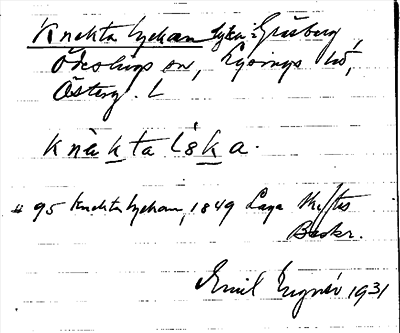 Knekta lyckan lyka: Gräsberg,
Ödeshögs sn, Lysings hd,
Österg. L
knäkta lska.
# 95 Knekta lyckan, 1849 Laga Skiftes
Beskr.
Emil 1931